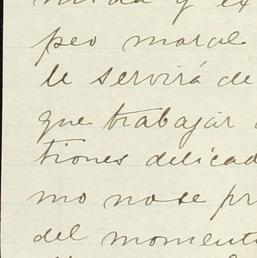 y ex
peo moral
le servirá de
que trabajar
tiones delicad
mo no se pr
del moment